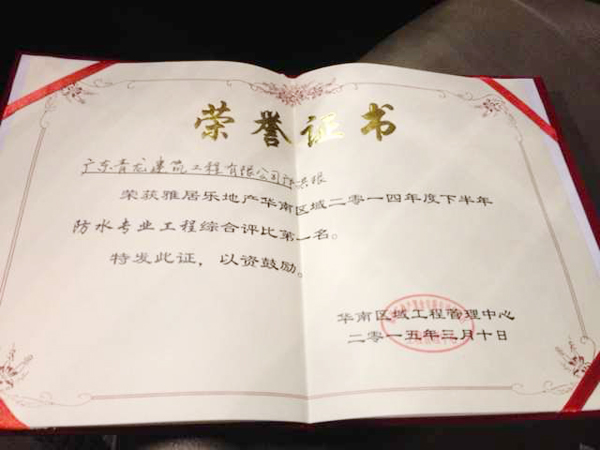 荣誉证书
广东青龙建筑工程有限公司
荣获雅居乐地产华南区域二零一四年度下半年
防水专业工程综合评比第一名。
特发此证，以资鼓励。
华南区域工程管理中心
二零一五年三月十日